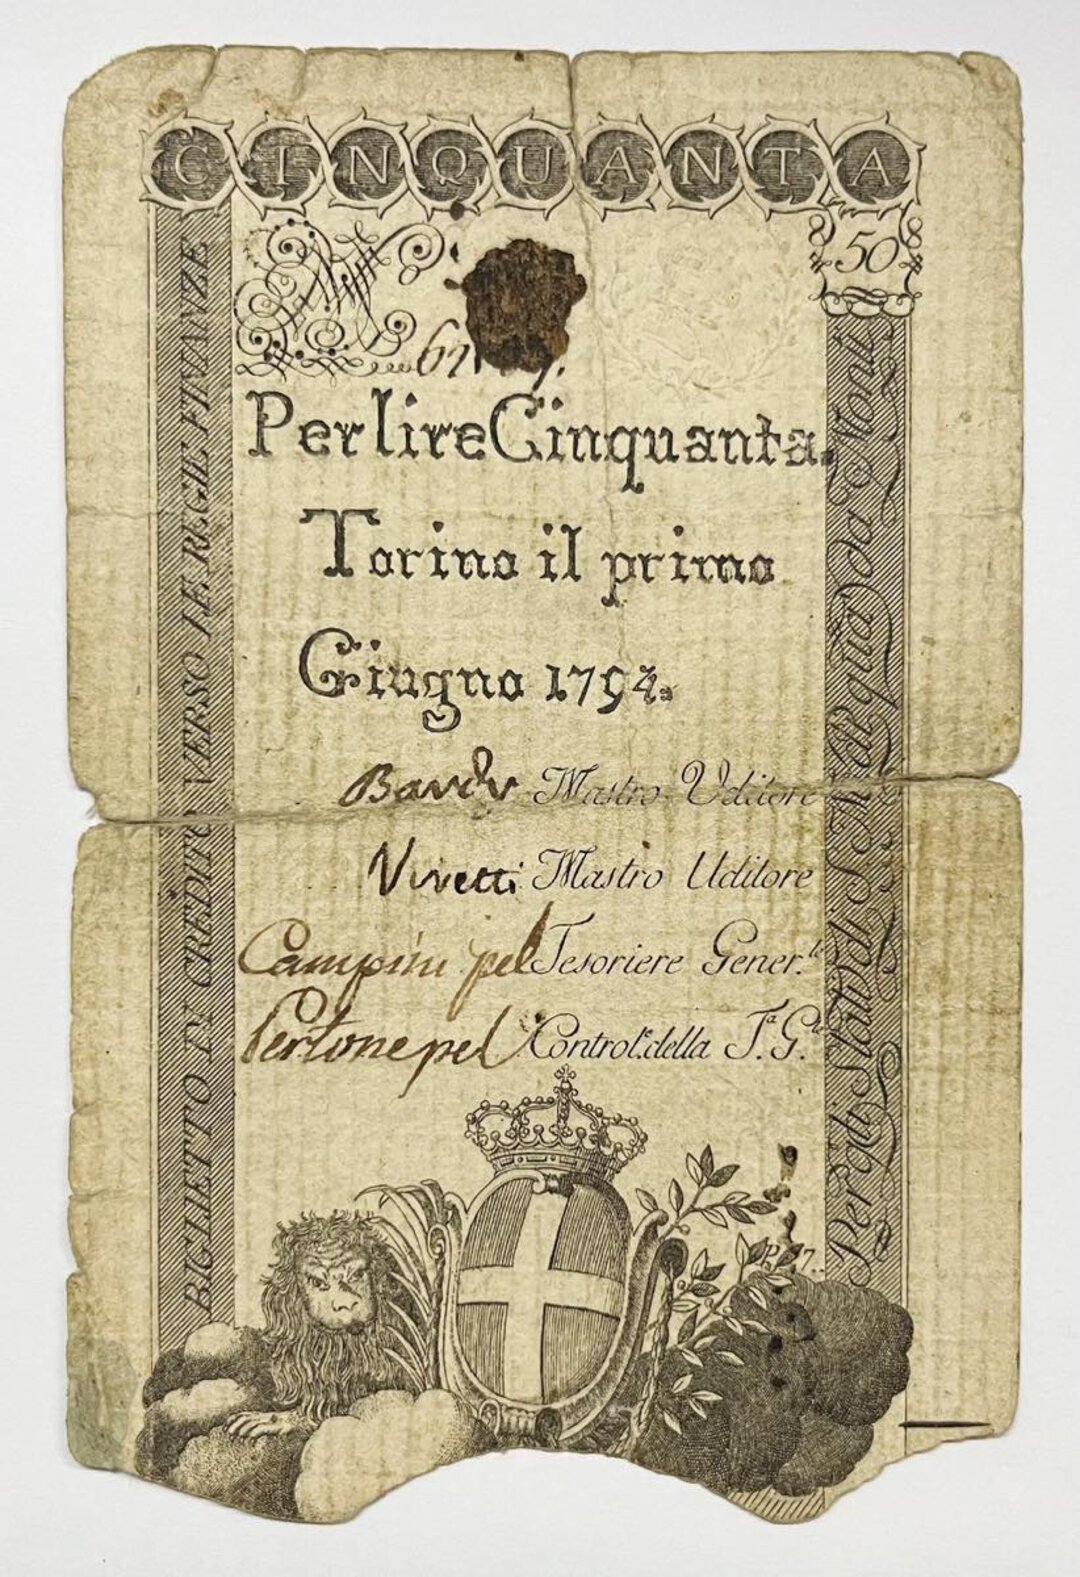 CINQUANTA
50
Per lire Cinquanta.
Torino il primo
Giugno 1794.
Mastro Uditore
Vivetti Mastro Uditore
Campini pel Tesoriere Gener.le
Pertone pel Control.e della T.a G.le
BIGLIETTO IN CREDITO VERSO LE REGIE FINANZE
Per gli Stati di S. M. di quà da Monti